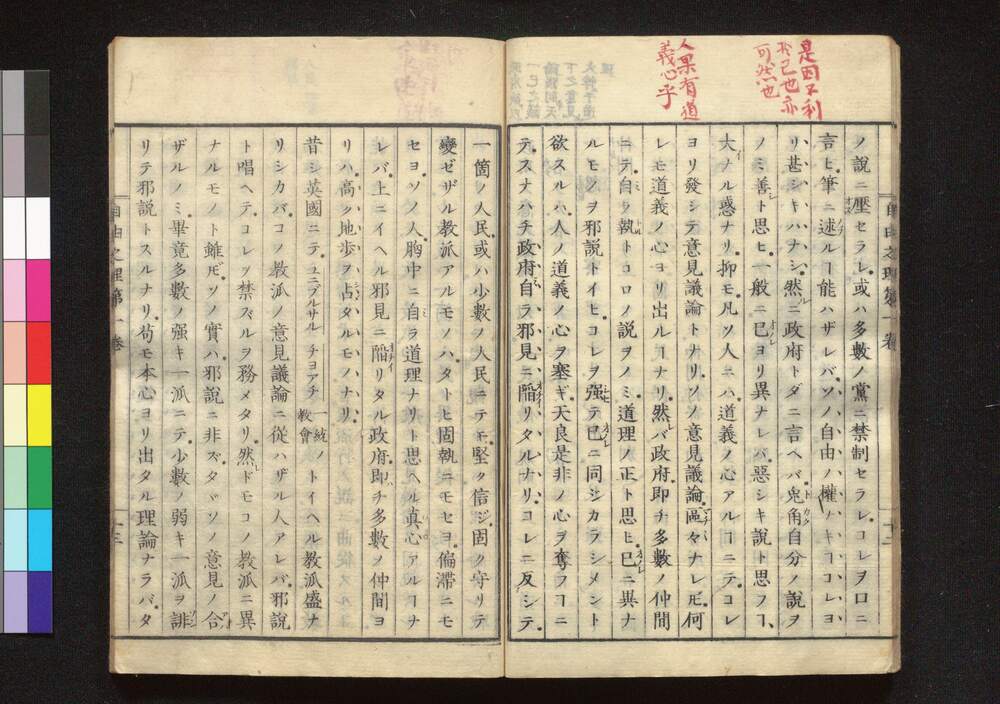 是因不利
於己也亦
可然也
人果有道
義心乎
ノ說ニ壓セラレ或ハ多數ノ黨ニ禁制セラレコレヲ口ニ
言ヒ筆ニ述ルヿ能ハザレバソノ自由ノ權ナキヿコレヨ
リ甚シキハナシ然ルニ政府トダニ言ヘバ兎角自分ノ說ヲ
ノミ善ト思ヒ一般ニ已ヨリ異ナレバ惡シキ說ト思フヿ
大ナル惑ナリ抑モ凡ソ人ニハ道義ノ心アルヿニテコレ
ヨリ發シテ意見議論トナリソノ意見議論區々ナレ𪜈何
レモ道義ノ心ヨリ出ルヿナリ然バ政府即チ多數ノ仲間
ニテ自ラ執トコロノ說ヲノミ道理ノ正ト思ヒ已ニ異ナ
ルモノヲ邪說トイヒコレヲ强テ已ニ同ジカラシメント
欲スルハ人ノ道義ノ心ヲ塞ギ天良是非ノ心ヲ奪フヿニ
テスナハチ政府自ラ邪見ニ陷リタルナリコレニ反シテ
自由之理第一卷
一箇ノ人民或ハ少數ノ人民ニテモ堅ク信ジ固ク守リテ
變ゼザル教派アルモノハタトヒ固執ニモセヨ偏滯ニモ
セヨソノ人胸中ニ自ラ道理ナリト思ヘル眞心アルヿナ
レバ上ニイヘル邪見ニ陷リタル政府即チ多數ノ仲間ヨ
リハ高ク地歩ヲ占タルモノナリ
昔シ英國ニテユニブルサル チヨアチ一統ノ教會トイヘル教派盛ナ
リシカバコノ教派ノ意見議論ニ從ハザル人アレバ邪說
ト唱ヘテコレヲ禁ズルヲ務メタリ然レドモコノ教派ニ異
ナルモノト雖𪜈ソノ實ハ邪說ニ非ズタヾソノ意見ノ合
ザルノミ畢竟多數ノ强キ一派ニテ少數ノ弱キ一派ヲ誹
リテ邪說トスルナリ苟モ本心ヨリ出タル理論ナラバタ
自由之理第一卷
十三